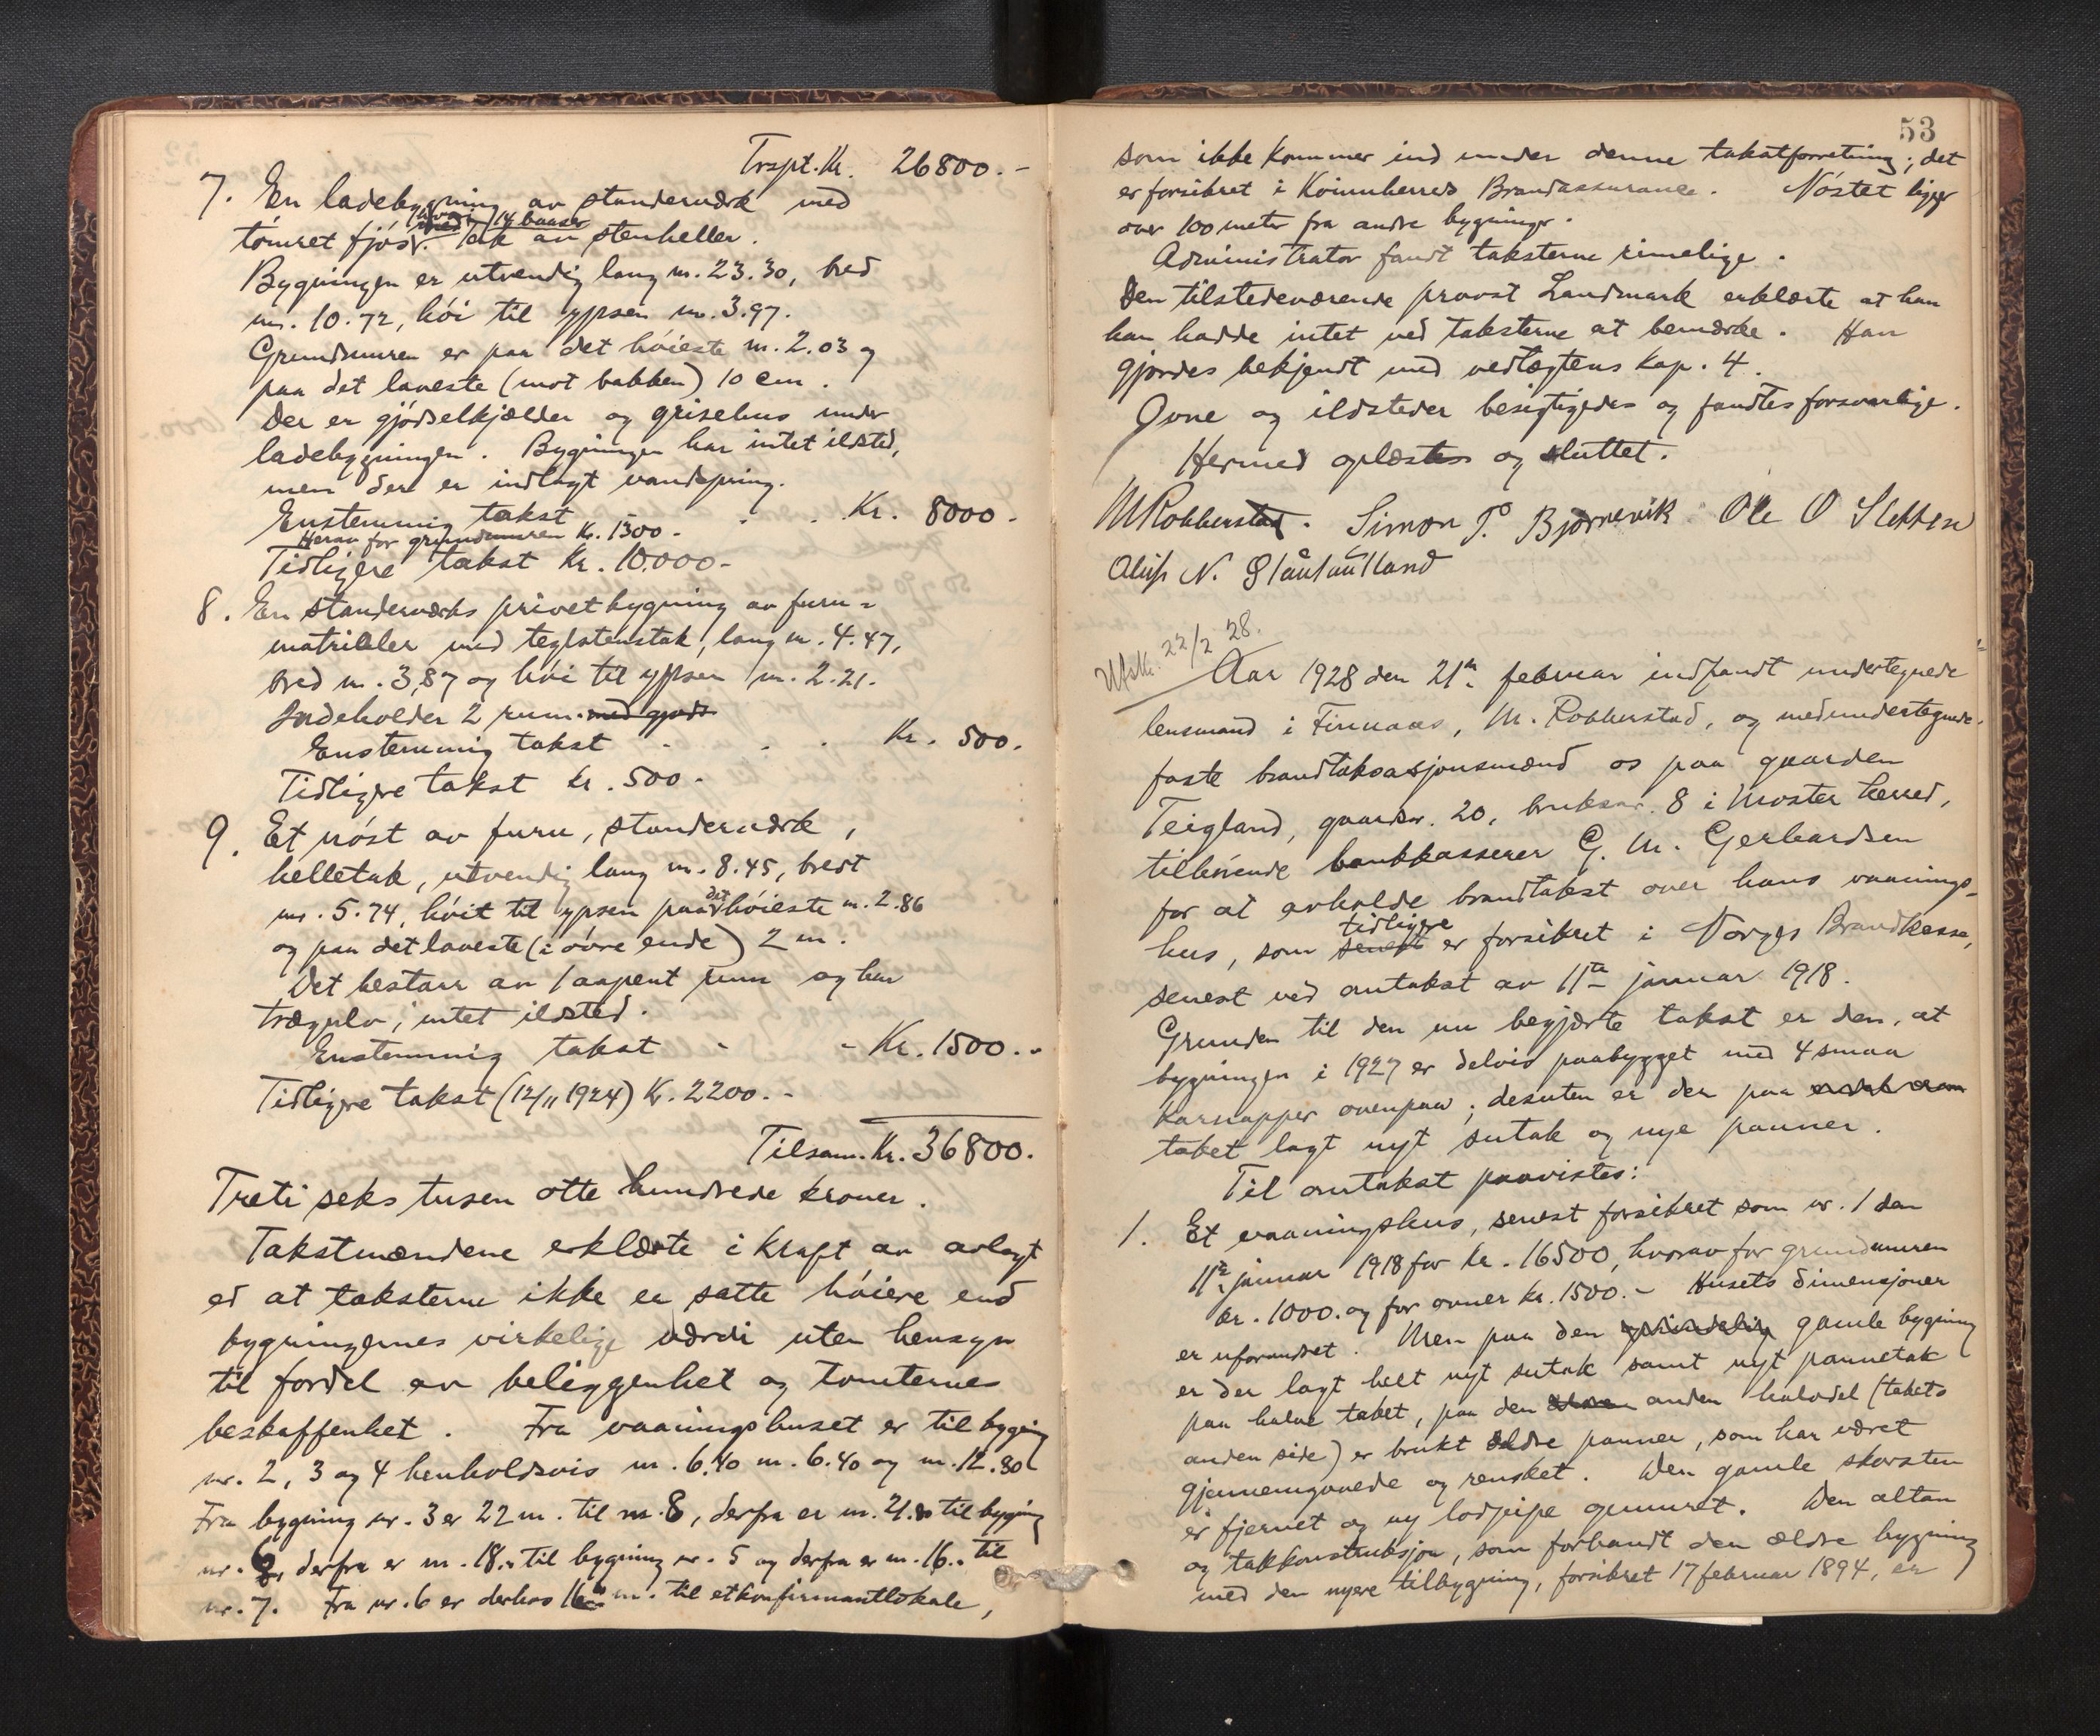 Trspt. Kr. 26800.-
7. En ladebygning av standerværk med
hvori 14 baaser
tømret fjøs. Tak av stenheller.
Bygningen er utvendig lang m. 23.30, bred
m. 10.72, høi til gypsen m. 3.97.
Grundmuren er paa det høieste m. 2.03 og
paa det laveste (mot bakken) 10 cm.
Der er gjødselkjælder og grisehus under
ladebygningen. Bygningen har intet ildsted,
men der er indlagt vandspring.
Enstemmig takst - . . Kr. 8000.
Herav for grundmuren Kr. 1300-
Tidligere takst Kr. 10.000-
8. En standerværks privetbygning av furu-
matrialer med teglstenstak, lang m. 4.47,
bred m. 3,87 og høi til gypsen m. 2.21.
Indeholder 2 rum. med gjøds
Enstemmig takst . . . Kr. 500.
Tidligere takst kr. 500-
9. Et nøst av furu, standerværk,
helletak, utvendig lang m. 8.45, bredt
m. 5.74, høit til gypsen paa det høieste m. 2.86
og paa det laveste (i øvre ende) 2 m.
Det bestaar av 1 aapent rum og har
trægulv, intet ildsted.
Enstemmig takst - - Kr. 1500.-
Tidligere takst (12/11 1924) Kr. 2200.-
Tilsam. Kr. 36800.
Treti seks tusen otte hundrede kroner.
Takstmændene erklærte i kraft av avlagt
ed at taksterne ikke er satte høiere end
bygningernes virkelige værdi uten hensyn
til fordel av beliggenhet og tomternes
beskaffenhet. Fra vaaningshuset er til bygning
nr. 2, 3 og 4 henholdsvis m. 6.40 m. 6.40 og m. 12.80
Fra bygning nr. 3 er 22 m. til nr. 8, derfra er m. 21.80 til bygning
nr. 6, derfra er m. 18.. til bygning nr. 5 og derfra er m. 16.. til
nr. 7. Fra nr. 6 er derhos 16 m. til et konfirmantlokale,
53
som ikke kommer ind under denne takstforretning; det
er forsikret i Kvinnherred Brandassurance. Nøstet ligger
over 100 meter fra andre bygninger.
Administrator fandt taksterne rimelige.
Den tilstedeværende provst Landmark erklærte at han
han hadde intet ved taksterne at bemærke. Han
gjordes bekjendt med vedtægtens kap. 4.
Ovne og ildsteder besigtigedes og fandtes forsvarlige.
Hermed oplæstes og sluttet.
M Robberstad. Simon T. Bjørnevik Ole O Sletten
N.
Utsk. 22/2 28.
Aar 1928 den 21de februar indfandt undertegnede
lensmand i Finnaas, M. Robberstad, og medundertegnede
faste brandtaksasjonsmænd os paa gaarden
Teigland, gaardsnr. 20, bruksnr. 8 i Moster herred,
tilhørende bankkasserer G. M. Gerhardsen
for at avholde brandtakst over hans vaanings-
tidligere
hus, som senest er forsikret i Norges Brandkasse,
senest ved omtakst av 11te januar 1918.
Grunden til den nu begjærte takst er den, at
bygningen i 1927 er delvis paabygget med 4 smaa
karnapper ovenpaa; desuten er der paa
taket lagt nyt sutak og nye panner.
Til omtakst paavistes:
1. Et vaaningshus, senest forsikret som nr. 1 den
11te januar 1918 for kr. 16500, hvorav for grundmuren
kr. 1000. og for ovner kr. 1500.- Husets dimensjoner
er uforandret. Men paa den oprindelig gamle bygning
er der lagt helt nyt sutak samt nyt pannetak
paa halve taket, paa den anden halvdel (takets
anden side) er brukt ældre panner, som har været
gjennemgaaede og rensket. Den gamle skorsten
er fjernet og ny lodpipe opmuret. Den altan
og takkonstruksjon, som forbandt den ældre bygning
med den nyere tilbygning, forsikret 17 februar 1894, er